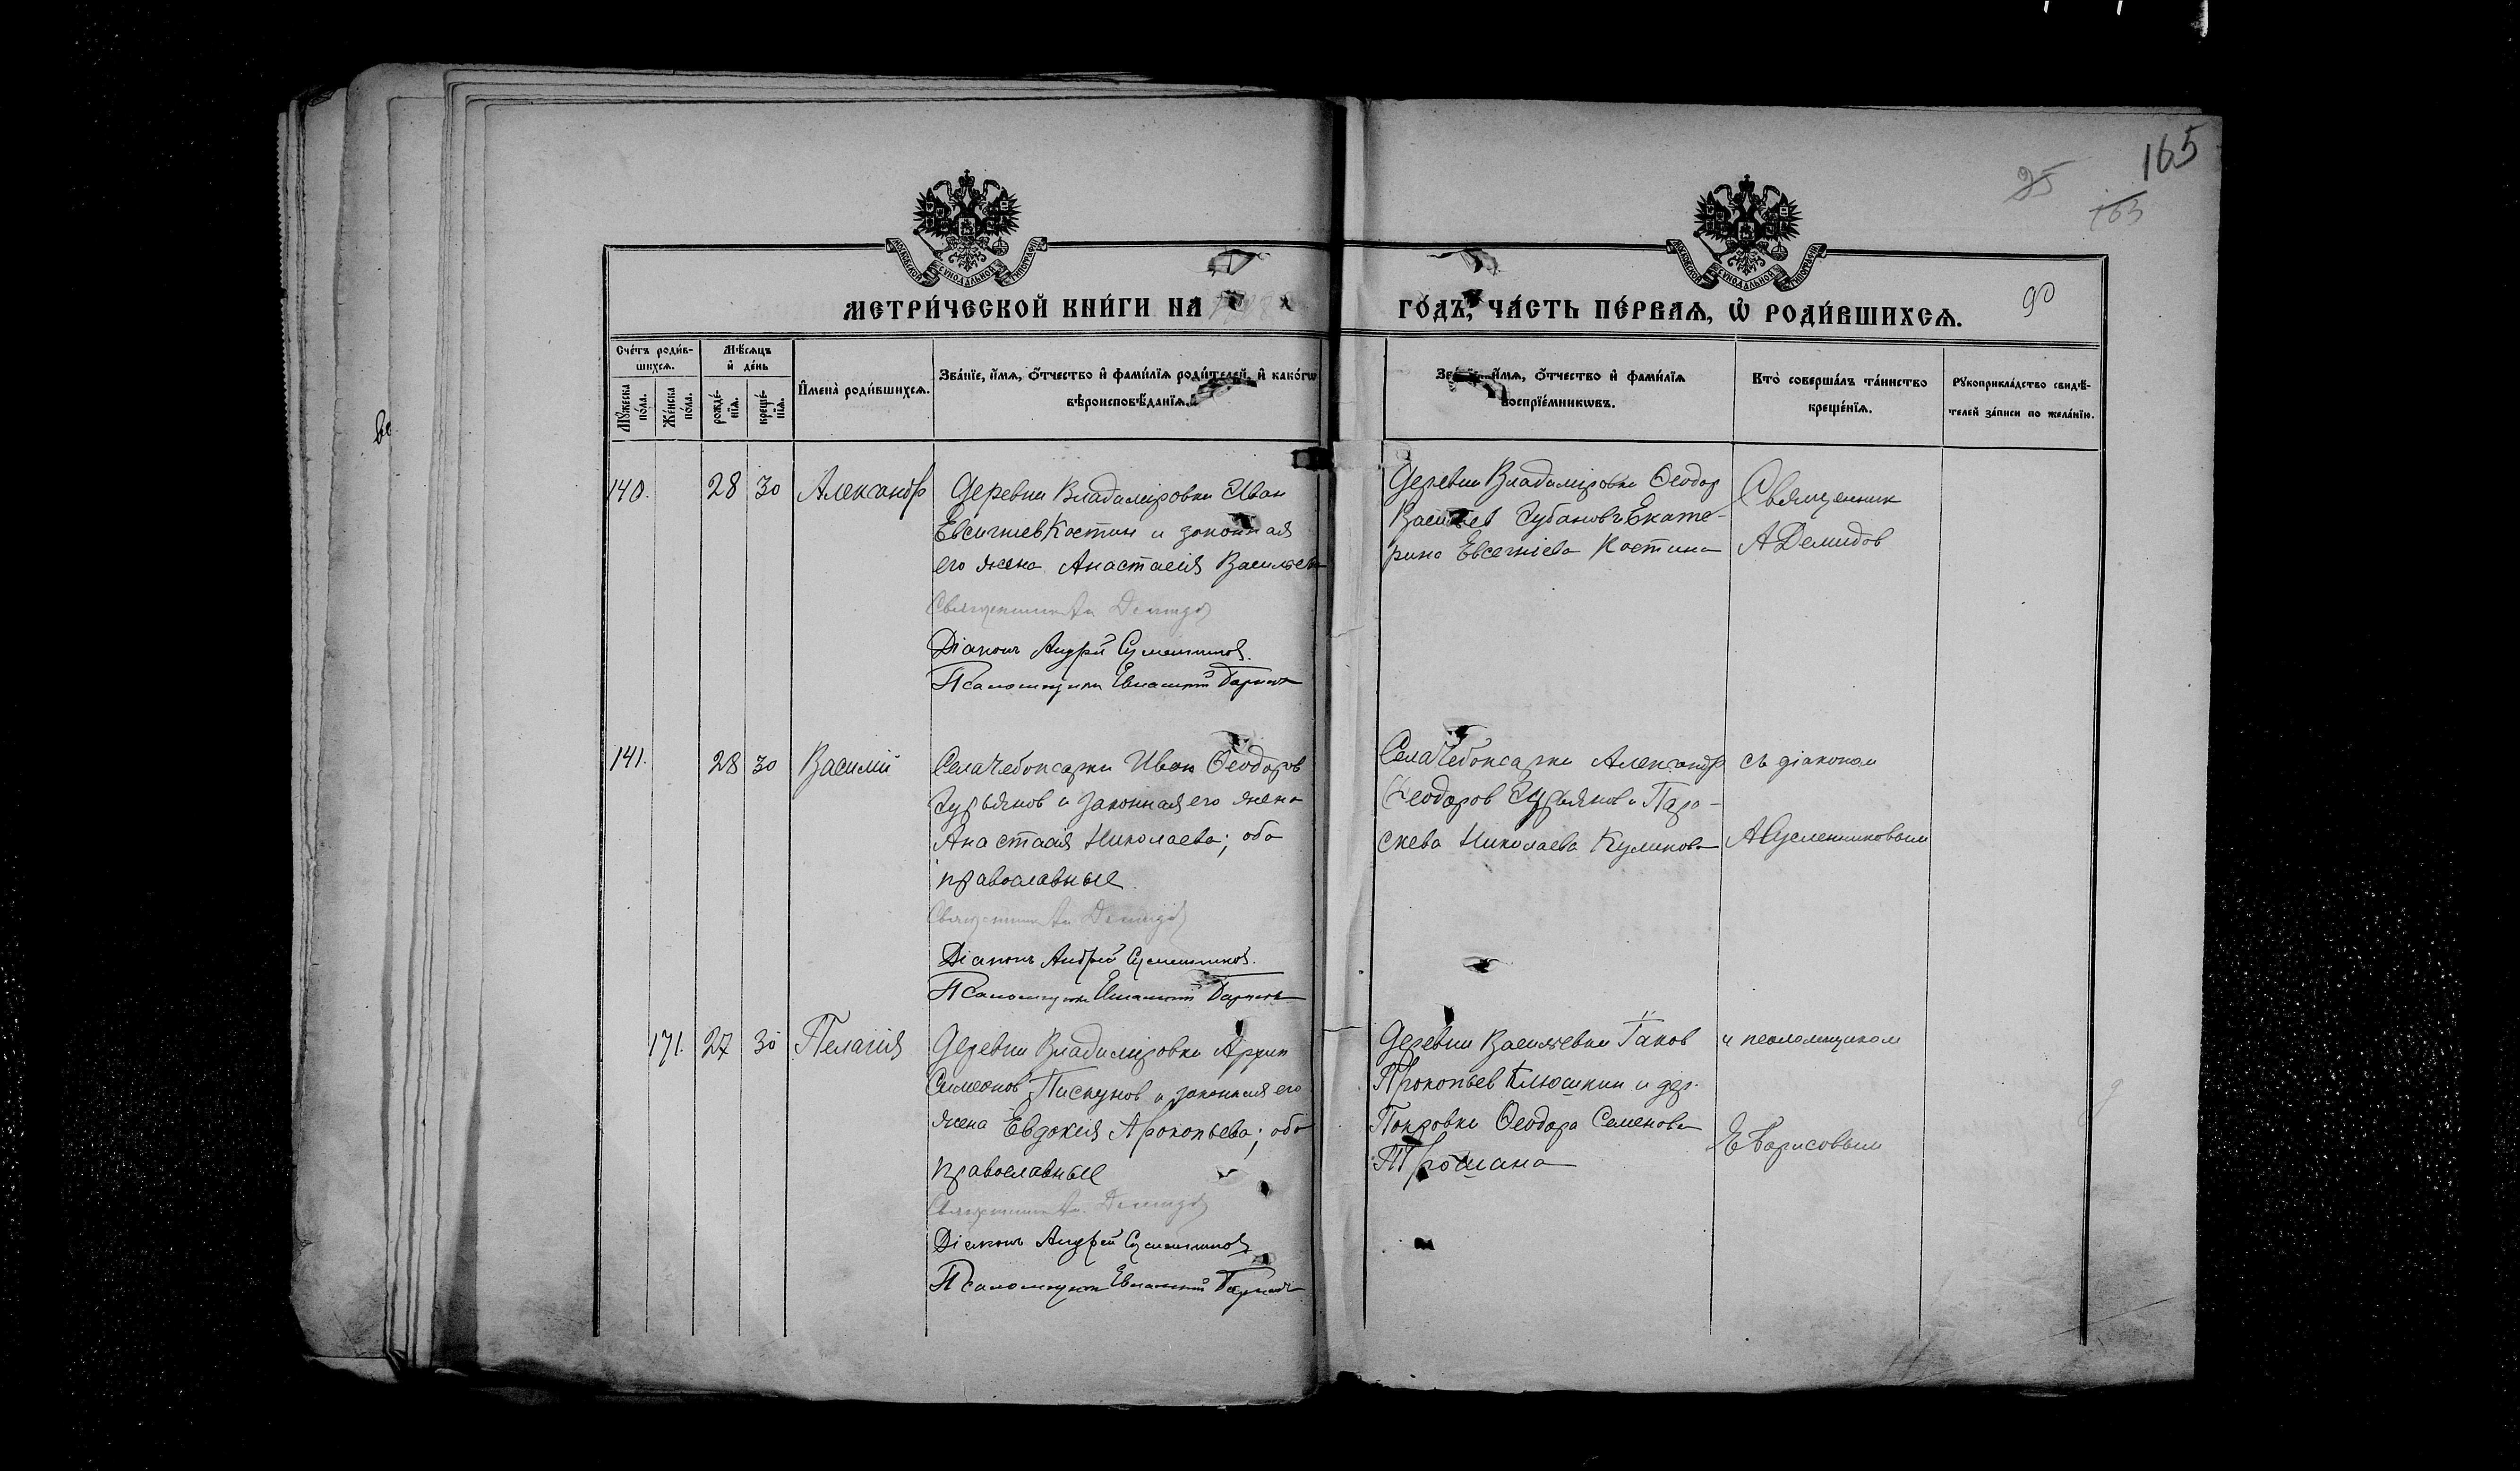 165
25
163
90
МОСКОВСКОЙ СѴНОДАЛЬНОЙ ТИПОГРАФІИ
МОСКОВСКОЙ СѴНОДАЛЬНОЙ ТИПОГРАФІИ
МЕТРИ́ЧЕСКОЙ КНИ́ГИ НА
ГО́ДЪ, ЧА́СТЬ ПЕ́РВАѦ, Ѡ҆ РОДИ́ВШИХСѦ.
Сче́тъ роди́в-
шихсѧ.
Мѣ́сѧцъ
и҆ де́нь
Мꙋ́жеска
пола.
Же́нска
по́ла.
рожде́-
нїѧ.
креще́-
нїѧ.
И҆мена̀ роди́вшихсѧ.
Зва́нїе, и҆́мѧ, ѻ҆́тчество и҆ фами́лїѧ роди́телей, и҆ како́гѡ
вѣроисповѣ́данїѧ.
Зва́нїе, и҆́мѧ, ѻ҆́тчество и҆ фами́лїѧ
воспрїе́мникѡвъ.
Кто̀ соверша́лъ та́инство
креще́нїѧ.
Рꙋкоприкла́дство свидѣ́-
телей за́писи по жела́нїю.
140.
28 30
Александр
Деревни Владиміровки Иван
Евсигніев Костин и законная
его жена Анастасія Васильева
Священник Ал Демидов
Діаконъ Андрей Сусленников.
Псаломщикъ Евлампій Борисов
Деревни Владиміровки Ѳеодор
Васильев Губановъ Екате-
рина Евсегніева Костина
Священник
А Демидов
141.
28 30
Василій
Села Чебоксарки Иван Ѳеодоров
Гурьянов и законная его жена
Анастасія Николаева; оба
православные.
Священник Ал Демидов
Діаконъ Андрей Сусленников.
Псаломщикъ Евлампій Борисов
Села Чебоксарки Александр
Ѳеодоров Гурьянов и Пара-
скева Николаева Куликова
съ діаконом
А Сусленниковым
171.
27 30
Пелагія
Деревни Владиміровки Архип
Симеонов Пискунов и законная его
жена Евдокія Прокопьева; оба
православные
Священник Ал. Демидов
Діаконъ Андрей Сусленников
Псаломщикъ Евлампій Борисов
Деревни Васильевки Іаков
Прокопьев Клюшкин и дер.
Покровки Ѳеодора Семенова
Трошана
и псаломщиком
Е Борисовым